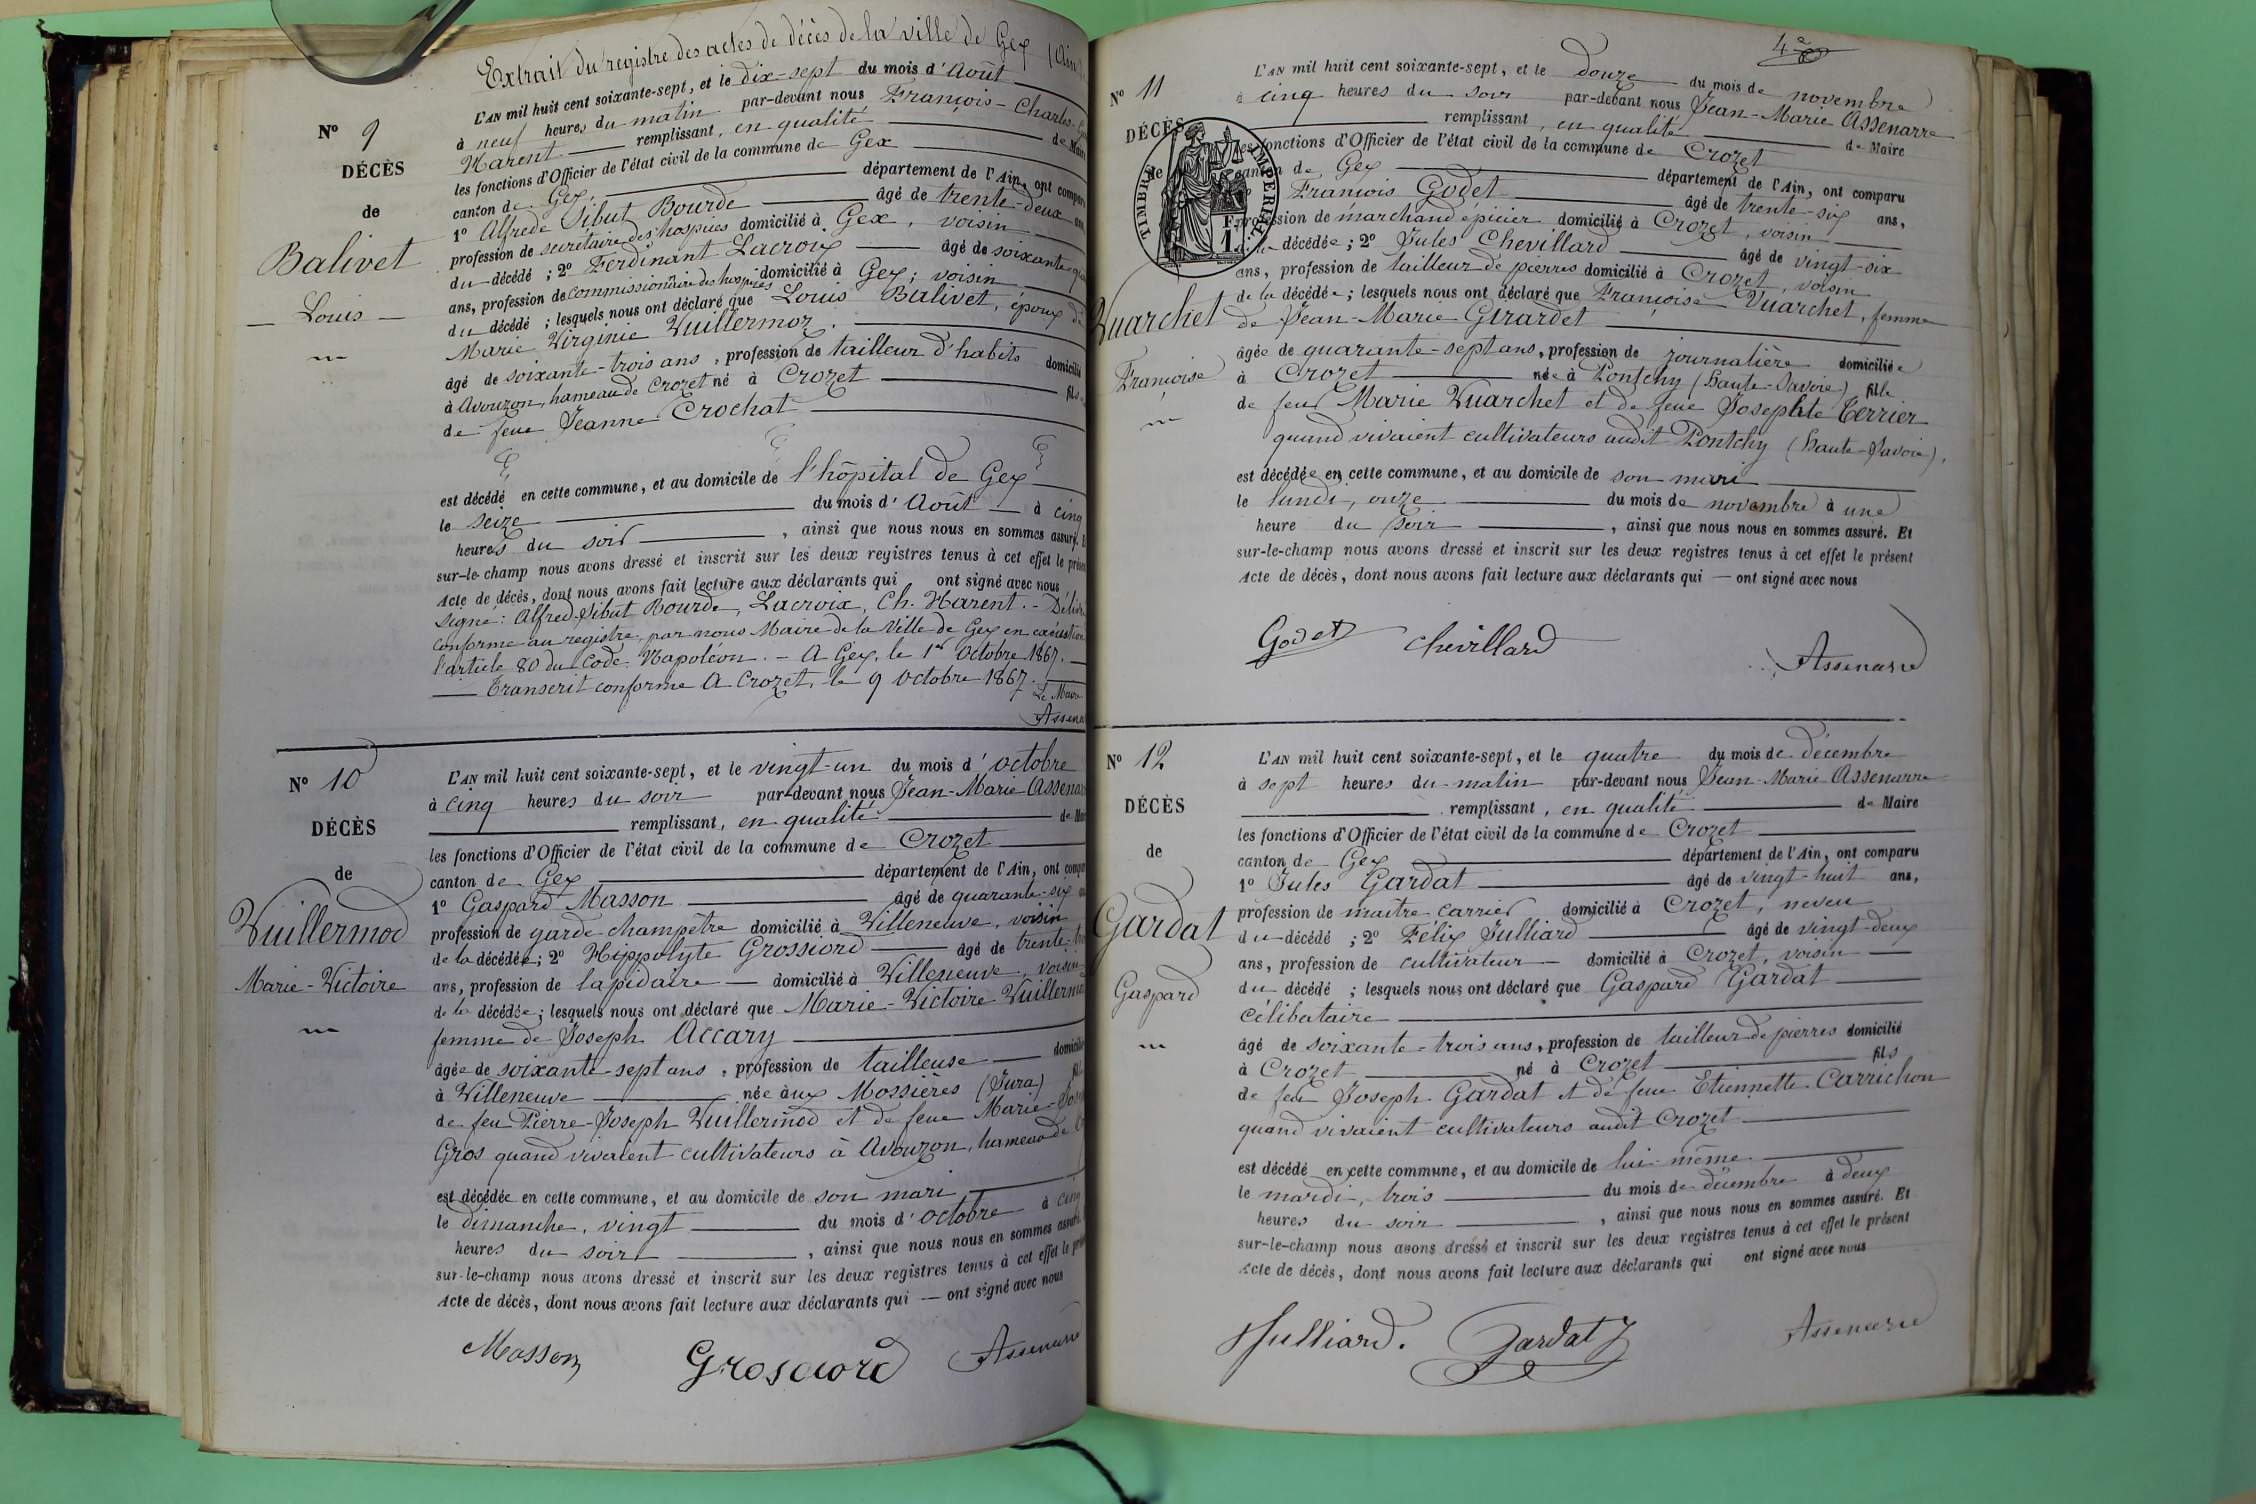 Extrait du registre des actes de décès de la ville de Gex (Ain)
N° 9
DÉCÈS
de
Balivet
Louis
L'AN mil huit cent soixante-sept, et le dix-sept du mois d'Août
à neuf heures du matin par-devant nous François-Charles
Harent remplissant, en qualité de Maire
les fonctions d'Officier de l'état civil de la commune de Gex
canton de Gex, département de l'Ain, ont comparu
1° Alfrede Sibut Bourde âgé de trente-deux ans,
profession de secrétaire des hospices domicilié à Gex, voisin
du décédé ; 2° Ferdinant Lacroix âgé de soixante
ans, profession de commissionnaire des hospices domicilié à Gex ; voisin
du décédé ; lesquels nous ont déclaré que Louis Balivet, époux de
Marie Virginie Vuillermoz.
âgé de soixante-trois ans, profession de tailleur d'habits domicilié
à Avouzon, hameau de Crozet né à Crozet fils
de feue Jeanne Crochat
est décédé en cette commune, et au domicile de l'hôpital de Gex
le seize du mois d'Août à cinq
heures du soir, ainsi que nous nous en sommes assuré. Et
sur-le-champ nous avons dressé et inscrit sur les deux registres tenus à cet effet le présent
Acte de décès, dont nous avons fait lecture aux déclarants qui ont signé avec nous
Signé : Alfred Sibut Bourde, Lacroix, Ch. Harent. - Délivré
conforme au registre, par nous Maire de la Ville de Gex en exécution
l'article 80 du Code Napoléon. - A Gex, le 1er Octobre 1867.
Transcrit conforme A Crozet, le 9 Octobre 1867.
Le Maire
N° 10
DÉCÈS
de
Vuillermod
Marie-Victoire
L'AN mil huit cent soixante-sept, et le vingt-un du mois d'octobre
à cinq heures du soir par-devant nous Jean-Marie Assenarre
remplissant, en qualité de Maire
les fonctions d'Officier de l'état civil de la commune de Crozet
canton de Gex département de l'Ain, ont comparu
1° Gaspard Masson âgé de quarante-six
profession de garde-champêtre domicilié à Villeneuve, voisin
de la décédée ; 2° Hippolyte Grossiord âgé de trente
ans, profession de lapidaire domicilié à Villeneuve, voisin
de la décédée ; lesquels nous ont déclaré que Marie-Victoire Vuillermod
femme de Joseph Accary
âgée de soixante-sept ans, profession de tailleuse domiciliée
à Villeneuve née aux Mossières (Jura)
de feu Pierre-Joseph Vuillermod et de feue Marie
Gros quand vivaient cultivateurs à Avouzon, hameau de
est décédée en cette commune, et au domicile de son mari
le dimanche, vingt du mois d'octobre à cinq
heures du soir, ainsi que nous nous en sommes assuré.
sur-le-champ nous avons dressé et inscrit sur les deux registres tenus à cet effet le présent
Acte de décès, dont nous avons fait lecture aux déclarants qui — ont signé avec nous
Masson Grossiord Assenarre
4e
N° 11
DÉCÈS
de
TIMBRE IMPERIAL
F.
1
Vuarchet
Françoise
L'AN mil huit cent soixante-sept, et le douze du mois de novembre
à cinq heures du soir par-devant nous Jean-Marie Assenarre
remplissant, en qualité de Maire
les fonctions d'Officier de l'état civil de la commune de Crozet
canton de Gex département de l'Ain, ont comparu
François Godet âgé de trente-six ans,
profession de marchand épicier domicilié à Crozet, voisin
décédée ; 2° Jules Chevillard âgé de vingt-six
ans, profession de tailleur de pierres domicilié à Crozet, voisin
de la décédée ; lesquels nous ont déclaré que Françoise Vuarchet, femme
de Jean-Marie Girardet
âgée de quarante-sept ans, profession de journalière domiciliée
à Crozet née à Pontchy (haute-Savoie) fille
de feu Marie Vuarchet et de feue Josephte Terrier
quand vivaient cultivateurs audit Pontchy (haute-Savoie),
est décédée en cette commune, et au domicile de son mari
le lundi, onze du mois de novembre à une
heure du soir, ainsi que nous nous en sommes assuré. Et
sur-le-champ nous avons dressé et inscrit sur les deux registres tenus à cet effet le présent
Acte de décès, dont nous avons fait lecture aux déclarants qui — ont signé avec nous
Godet Chevillard Assenarre
N° 12
DÉCÈS
de
Gardat
Gaspard
L'AN mil huit cent soixante-sept, et le quatre du mois de décembre
à sept heures du matin par-devant nous Jean-Marie Assenarre
remplissant, en qualité de Maire
les fonctions d'Officier de l'état civil de la commune de Crozet
canton de Gex département de l'Ain, ont comparu
1° Jules Gardat âgé de vingt-huit ans,
profession de maître carrier domicilié à Crozet, neveu
du décédé ; 2° Félix Julliard âgé de vingt-deux
ans, profession de cultivateur domicilié à Crozet, voisin
du décédé ; lesquels nous ont déclaré que Gaspard Gardat
célibataire
âgé de soixante-trois ans, profession de tailleur de pierres domicilié
à Crozet né à Crozet fils
de feu Joseph Gardat et de feue Etiennette Carrichon
quand vivaient cultivateurs audit Crozet
est décédé en cette commune, et au domicile de lui-même
le mardi, trois du mois de décembre à deux
heures du soir, ainsi que nous nous en sommes assuré. Et
sur-le-champ nous avons dressé et inscrit sur les deux registres tenus à cet effet le présent
Acte de décès, dont nous avons fait lecture aux déclarants qui ont signé avec nous
Julliard. Gardat J Assenarre